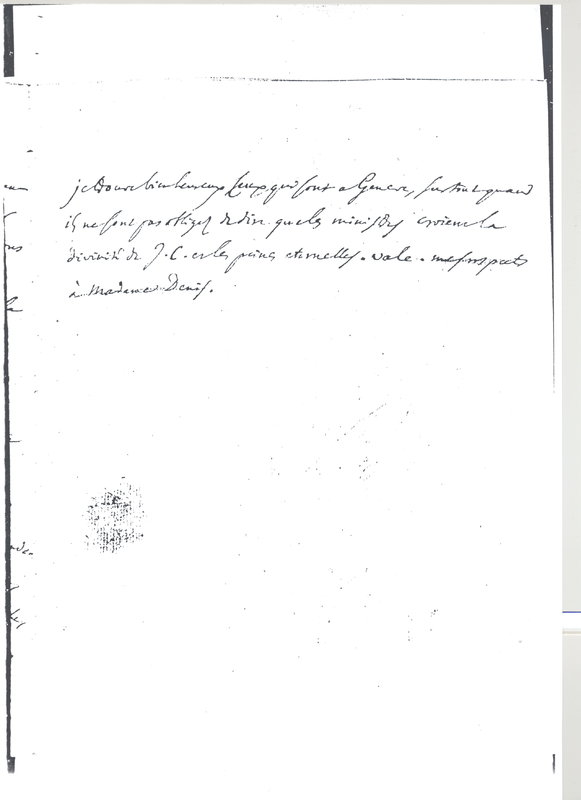 je trouve bienheureux ceux qui sont a Geneve, surtout quand
ils ne sont pas obligez de dire que les ministres croient la
divinité de J. C. et les peines eternelles. vale. mes respects
à Madame Denis.